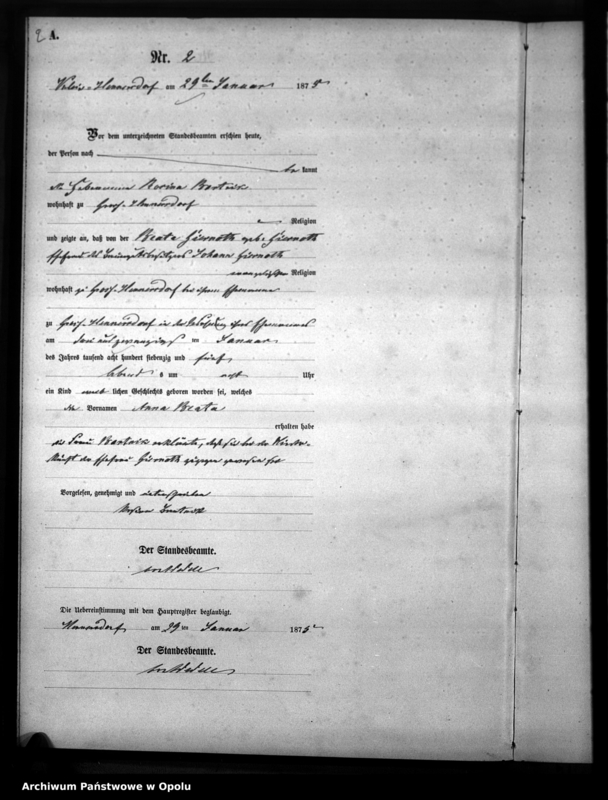 2 A.
Nr. 2
Hennersdorf am 29ten Januar 1875
Vor dem unterzeichneten Standesbeamten erschien heute,
der Person nach
be kannt
die Hebamme Rosina Bartnik
wohnhaft zu Gross Hennersdorf
Religion
und zeigte an, daß von der Beata Giernoth geb. Giernoth
Ehefrau des Johann Giernoth
evangelischer Religion
wohnhaft zu Gross Hennersdorf bei ihrem Ehemanne
zu Gross Hennersdorf in der Behausung ihres Ehemannes
am drei und zwanzigsten Januar
des Jahres tausend acht hundert siebenzig und fünf
Abends um acht Uhr
ein Kind weib lichen Geschlechts geboren worden sei, welches
die Vornamen Anna Beata
erhalten habe
die Frau Bartnik erklärte, daß sie bei der Nieder-
kunft der Ehefrau Giernoth zugegen gewesen sei
Vorgelesen, genehmigt und unterschrieben
Der Standesbeamte.
Die Uebereinstimmung mit dem Hauptregister beglaubigt.
Hennersdorf am 29 ten Januar 1875
Der Standesbeamte.
Archiwum Państwowe w Opolu